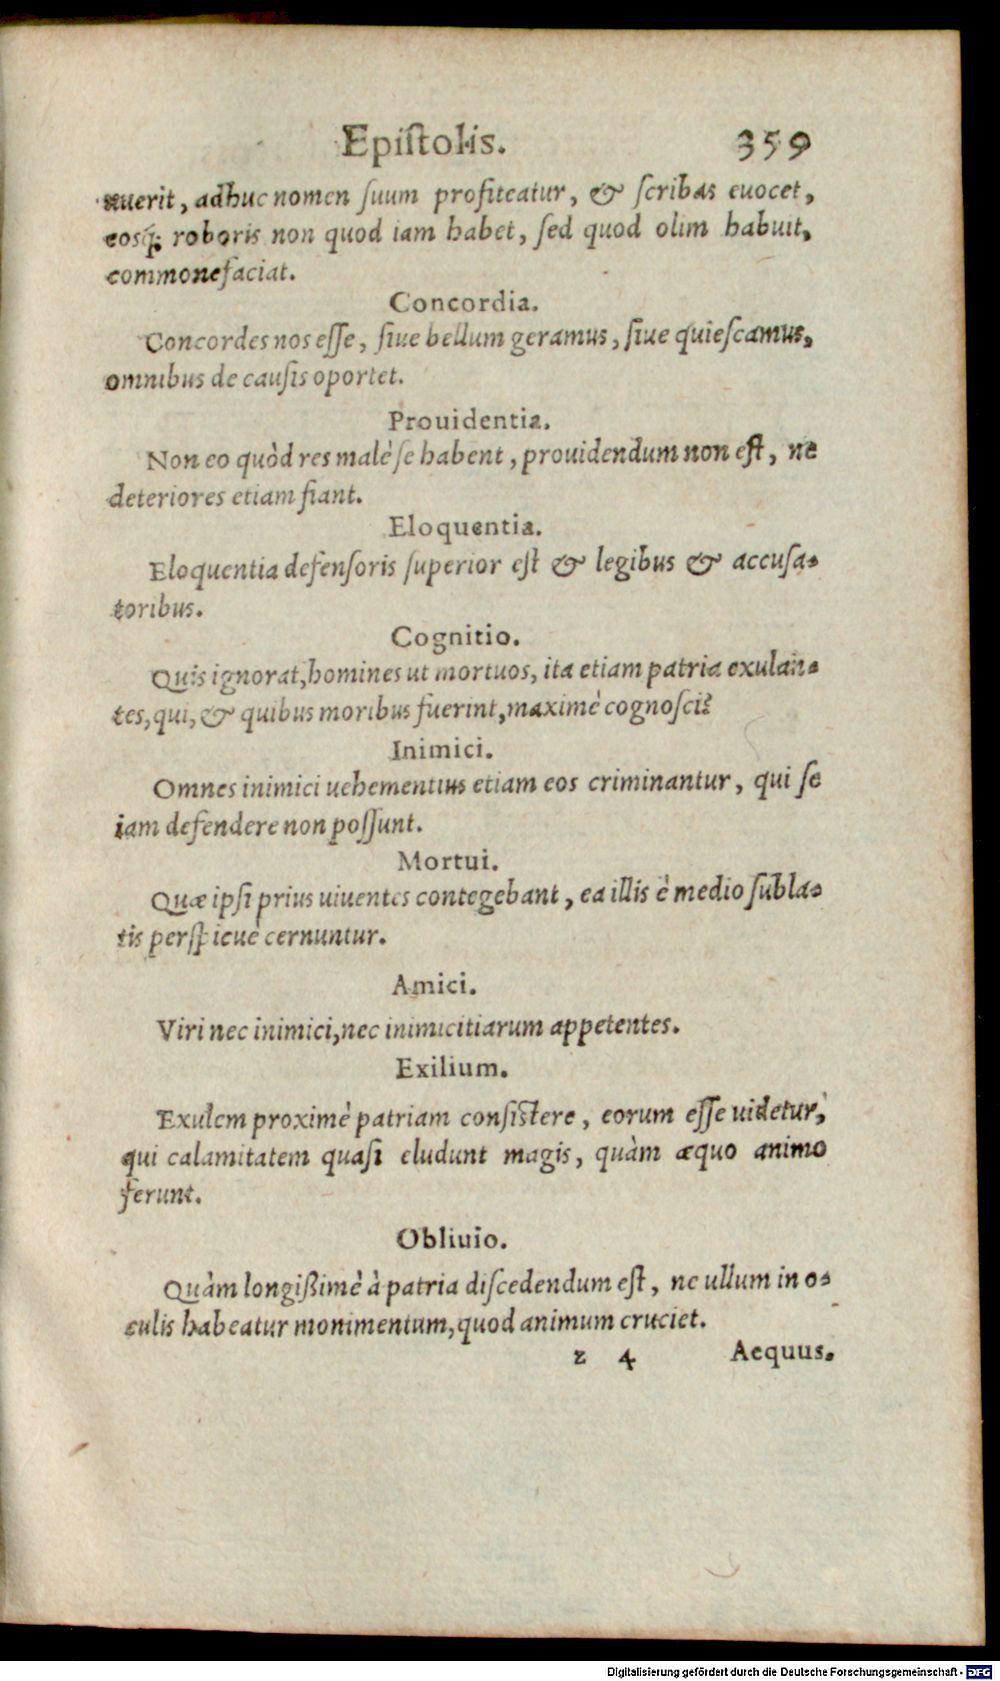 Epiſtolis. 359
nuerit, adhuc nomen ſuum profiteatur, & ſcribas euocet,
eosq́; roboris non quod iam habet, ſed quod olim habuit,
commonefaciat.
Concordia.
Concordes nos eſſe, ſiue bellum geramus, ſiue quieſcamus,
omnibus de cauſis oportet.
Prouidentia.
Non eo quòd res malè ſe habent, prouidendum non eſt, ne
deteriores etiam fiant.
Eloquentia.
Eloquentia defenſoris ſuperior eſt & legibus & accuſa-
toribus.
Cognitio.
Quis ignorat, homines ut mortuos, ita etiam patria exulan-
tes, qui, & quibus moribus fuerint, maximè cognoſci?
Inimici.
Omnes inimici uehementius etiam eos criminantur, qui ſe
iam defendere non poſſunt.
Mortui.
Quæ ipſi prius uiuentes contegebant, ea illis è medio ſubla-
tis perſpicuè cernuntur.
Amici.
Viri nec inimici, nec inimicitiarum appetentes.
Exilium.
Exulem proximè patriam conſiſtere, eorum eſſe uidetur,
qui calamitatem quaſi eludunt magis, quàm æquo animo
ferunt.
Obliuio.
Quàm longißimè à patria diſcedendum eſt, ne ullum in o-
culis habeatur monimentum, quod animum cruciet.
z 4 Aequus.
Digitalisierung gefördert durch die Deutsche Forschungsgemeinschaft - DFG